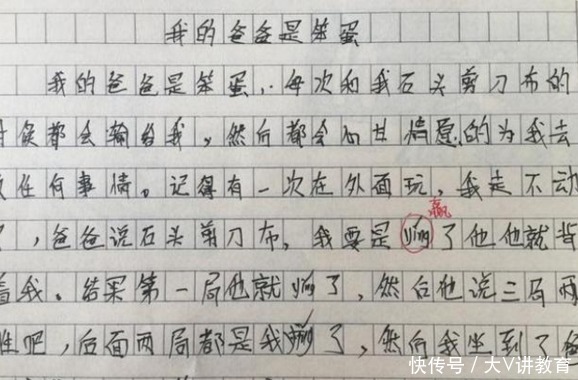 我的爸爸是笨蛋
我的爸爸是笨蛋，每次和我石头剪刀布的
时候都会输给我，然后都会心甘情愿的为我去
任何事情。记得有一次在外面玩，我走不动
了，爸爸说石头剪刀布，我要是ying了他他就背
赢
着我。结果第一局他就ying了，然后他说三局两
胜吧，后面两局都是我ying了，然后我坐到了
快传号／大V讲教育